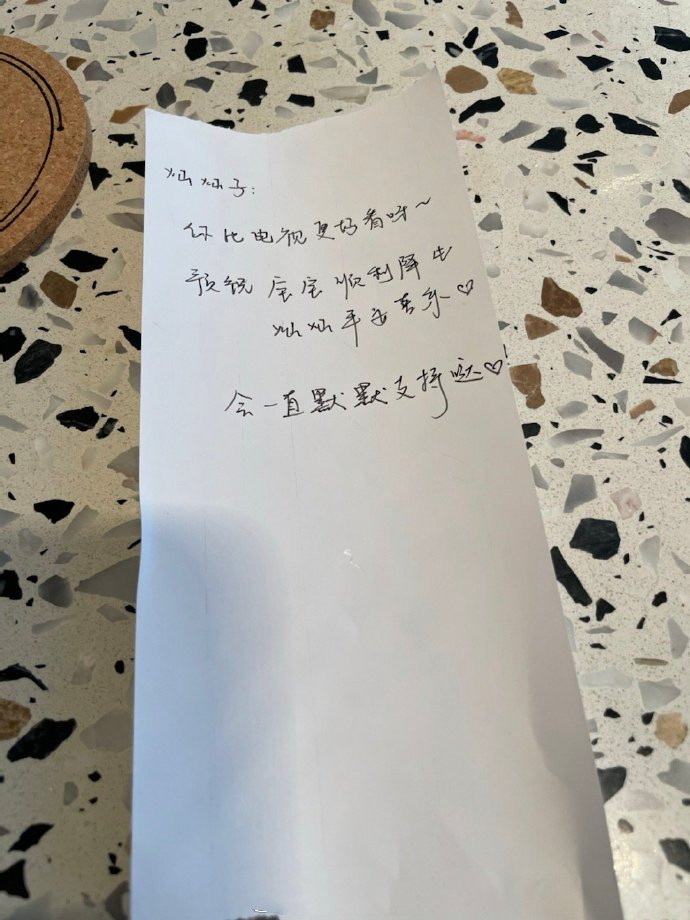 灿灿子：
你比电视更好看呀~
预祝宝宝顺利降生
灿灿平安喜乐♡
会一直默默支持哒♡!